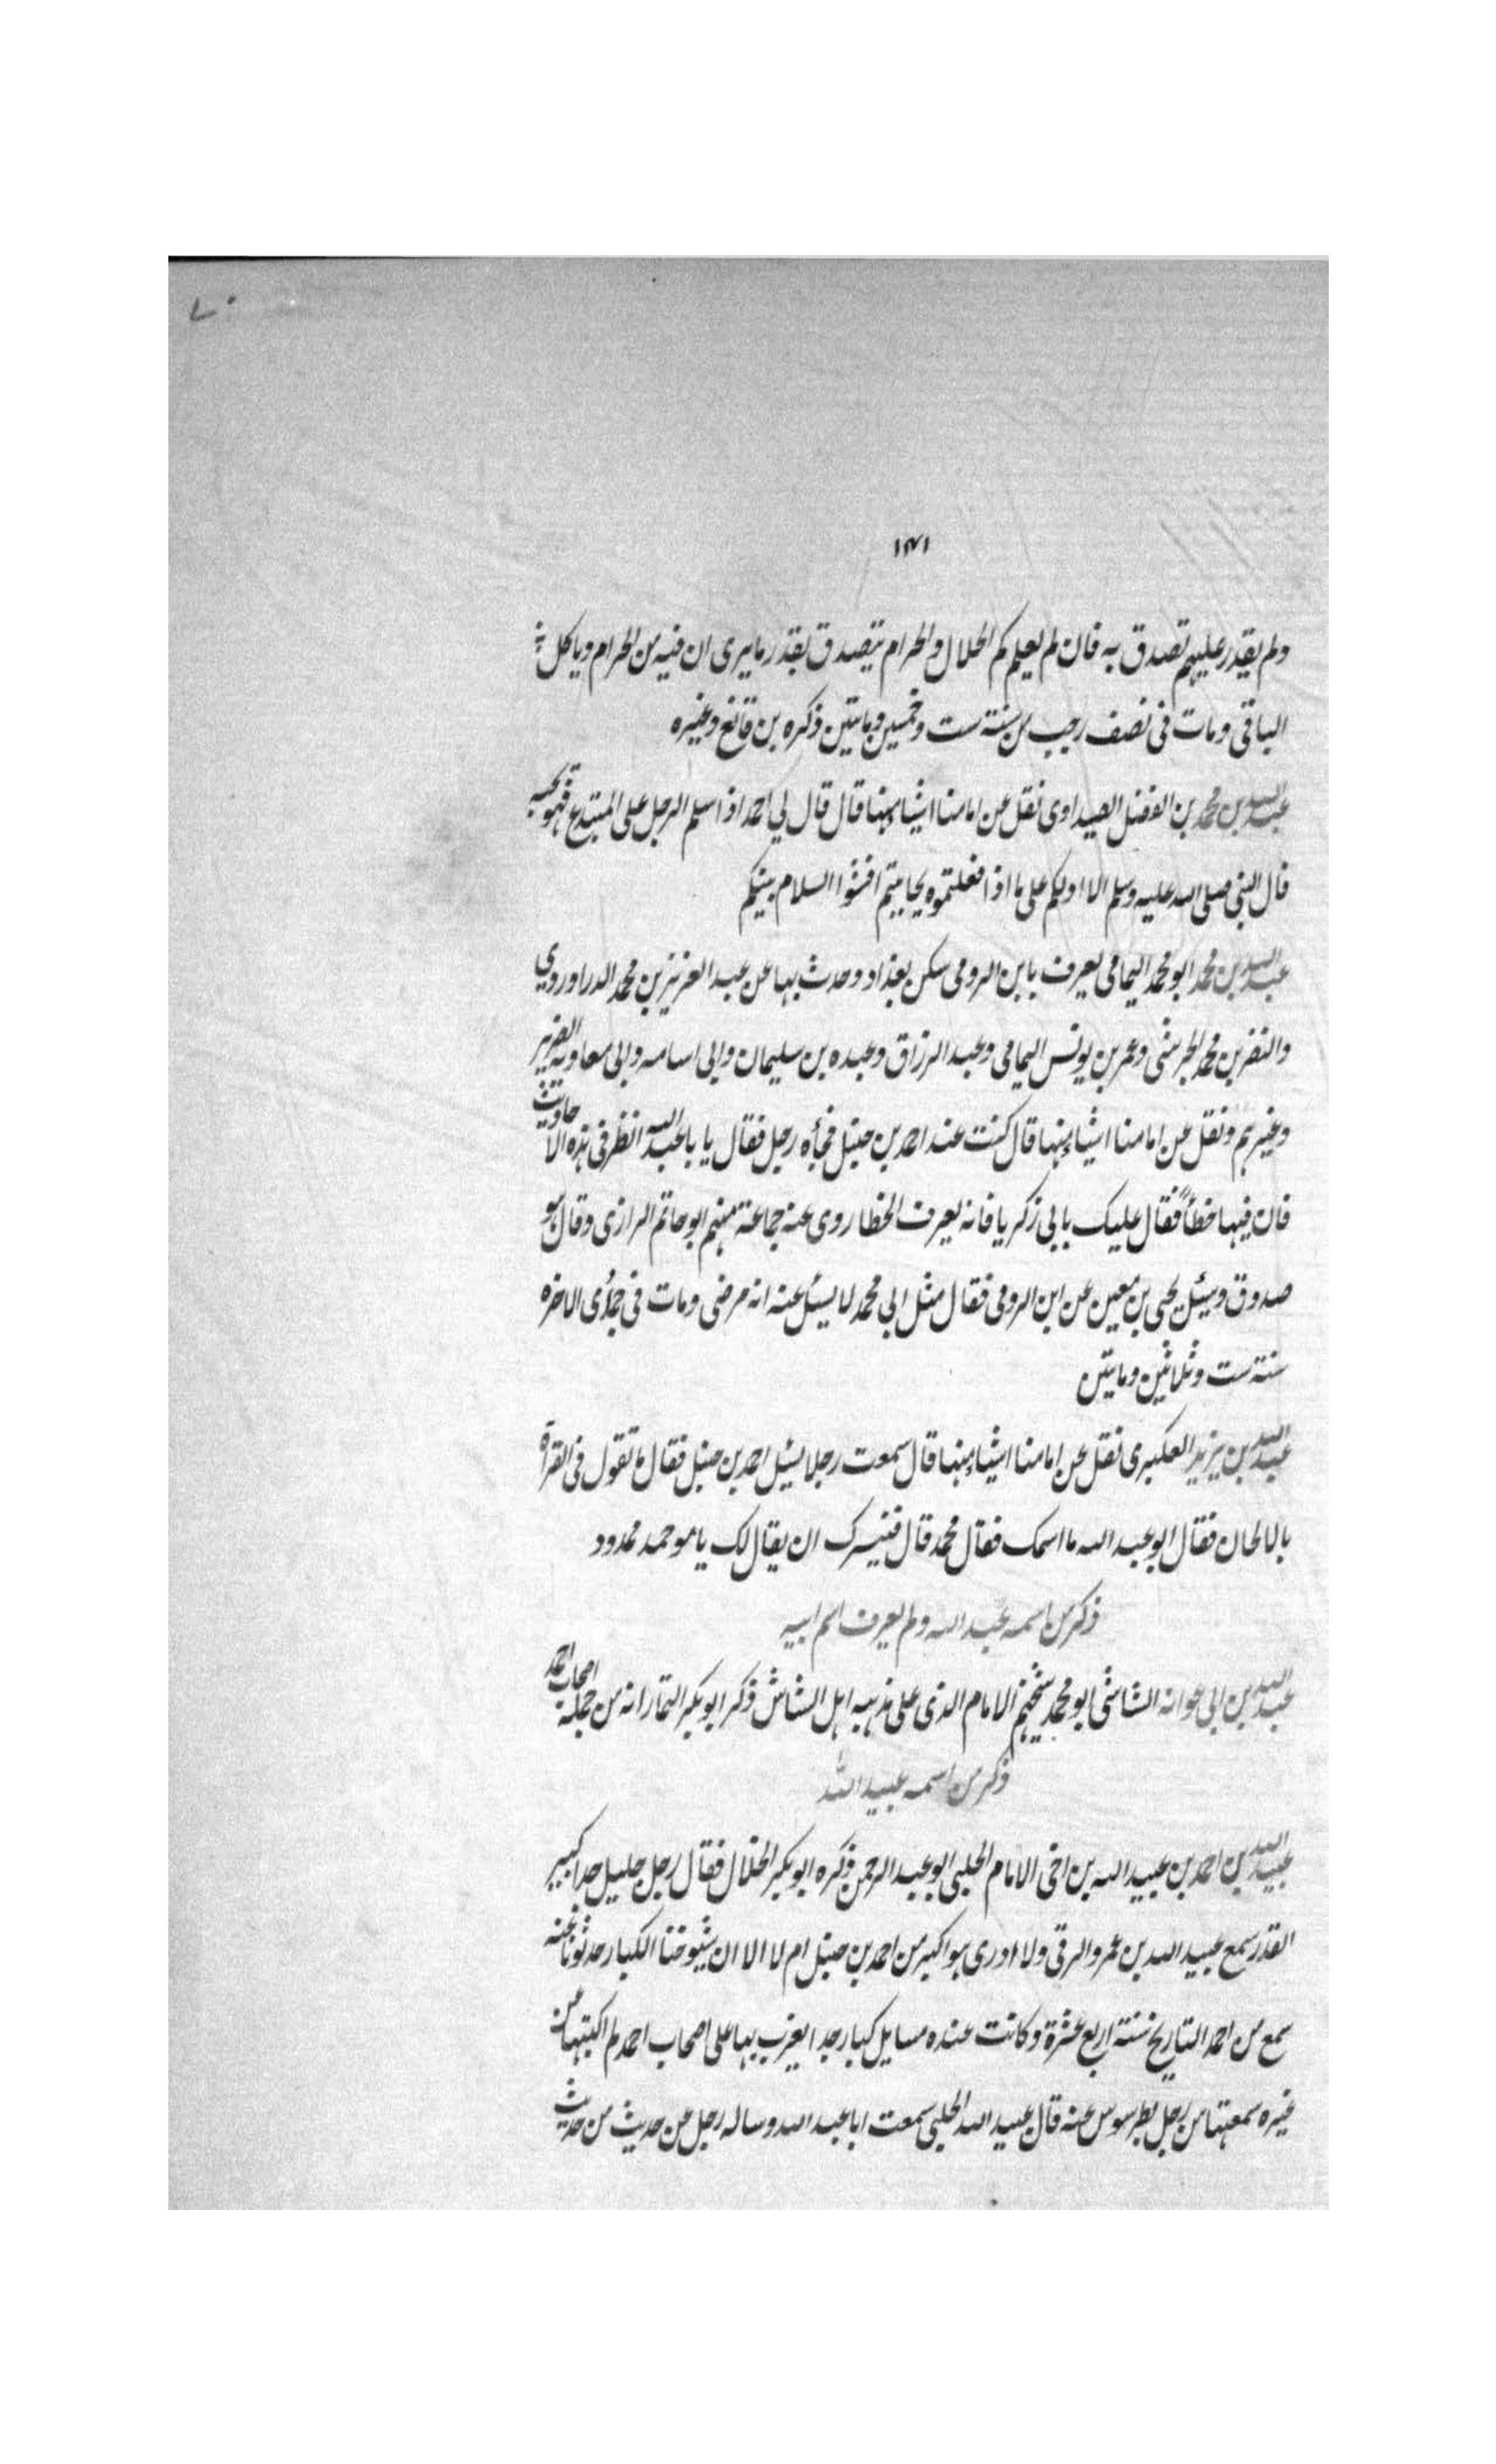 ٧٠
١٣١
ولم يقدر عليهم تصدق به فان لم يعلم كم الحلال والحرام يتصدق بقدر ما يرى ان فيه من الحرام وياكل
الباقى ومات فى نصف رجب من سنة ست وخمسين ومايتين ذكره بن قانع وغيره
عبد الله بن محمد بن الفضل الصيداوى نقل عن امامنا اشياء منها قال قال لى احمد اذا سلم الرجل على المبتدع فهو يحبه
قال النبى صلى الله عليه وسلم الا ادلكم على ما اذا فعلتموه تحاببتم افشوا السلام بينكم
عبد الله بن محمد ابو محمد اليمامى يعرف بابن الرومى سكن بغداد وحدث بها عن عبد العزيز بن محمد الدراوردي
والنضر بن محمد الجرشى وعمر بن يونس اليمامى وعبد الرزاق وعبده بن سليمان وابى اسامه وابى معاوية الضرير
وغيرهم ونقل عن امامنا اشياء منها قال كنت عند احمد بن حنبل فجاءه رجل فقال يا با عبد الله انظر فى هذه الاحاديث
فان فيها خطأً فقال عليك بابى زكريا فانه يعرف الخطا روى عنه جماعة منهم ابو حاتم الرازى وقال هو
صدوق وسئل يحيى بن معين عن ابن الرومى فقال مثل ابى محمد لا يسئل عنه انه مرضى ومات فى جمادى الاخره
سنة ست وثلاثين ومايتين
عبد الله بن يزيد العكبرى نقل عن امامنا اشياء منها قال سمعت رجلا يسئل احمد بن حنبل فقال ما تقول فى القرآة
بالالحان فقال ابو عبد الله ما اسمك فقال محمد قال فيسرك ان يقال لك يا موحمد ممدود
ذكر من اسمه عبد الله ولم يعرف اسم ابيه
عبد الله بن ابى عوانه الشاشى ابو محمد شيخهم الامام الذى على مذهبه اهل الشاش ذكر ابو بكر التمار انه من جملة اصحاب احمد
ذكر من اسمه عبيد الله
عبيد الله بن احمد بن عبيد الله بن اخى الامام الحلبى ابو عبد الرحمن ذكره ابو بكر الخلال فقال رجل جليل جدا كبير
القدر سمع عبيد الله بن عمرو الرقى ولا ادرى هو اكبر من احمد بن حنبل ام لا الا ان شيوخنا الكبار حدثونا عنه
سمع من احمد التاريخ سنة اربع عشرة وكانت عنده مسايل كبار جدا يغرب بها على اصحاب احمد لم اكتبها من
غيره سمعتها من رجل بطرسوس عنه قال عبيد الله الحلبى سمعت ابا عبد الله وساله رجل عن حديث من حديث